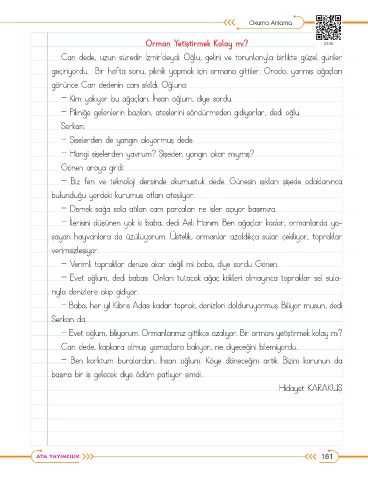 Okuma Anlama
2238
Orman Yetiştirmek Kolay mı?
Can dede, uzun süredir İzmir'deydi. Oğlu, gelini ve torunlarıyla birlikte güzel günler
geçiriyordu. Bir hafta sonu, piknik yapmak için ormana gittiler. Orada, yanmış ağaçları
görünce Can dedenin canı sıkıldı. Oğluna:
– Kim yakıyor bu ağaçları, İhsan oğlum, diye sordu.
– Pikniğe gelenlerin bazıları, ateşlerini söndürmeden gidiyorlar, dedi oğlu.
Serkan:
– Şişelerden de yangın çıkıyormuş dede.
– Hangi şişelerden yavrum? Şişeden yangın çıkar mıymış?
Gönen araya girdi:
– Biz fen ve teknoloji dersinde okumuştuk dede. Güneşin ışıkları şişede odaklanınca
bulunduğu yerdeki kurumuş otları ateşliyor.
– Demek sağa sola atılan cam parçaları ne işler açıyor başımıza.
– İlerisini düşünen yok ki baba, dedi Aslı Hanım. Ben ağaçlar kadar, ormanlarda ya-
şayan hayvanlara da üzülüyorum. Üstelik, ormanlar azaldıkça sular çekiliyor, topraklar
verimsizleşiyor.
– Verimli topraklar denize akar değil mi baba, diye sordu Gönen.
– Evet oğlum, dedi babası. Onları tutacak ağaç kökleri olmayınca toprakları sel sula-
rıyla denizlere akıp gidiyor.
– Baba, her yıl Kıbrıs Adası kadar toprak, denizleri dolduruyormuş. Biliyor musun, dedi
Serkan da.
– Evet oğlum, biliyorum. Ormanlarımız gittikçe azalıyor. Bir ormanı yetiştirmek kolay mı?
Can dede, kapkara olmuş yamaçlara bakıyor, ne diyeceğini bilemiyordu.
– Ben korktum buralardan, İhsan oğlum. Köye döneceğim artık. Bizim korunun da
başına bir iş gelecek diye ödüm patlıyor şimdi...
Hidayet KARAKUŞ
ATA YAYINCILIK
161